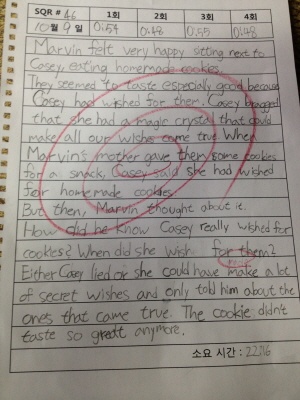 SQR # 46 1회 2회 3회 4회
10월 9일 0:54 0:48 0:55 0:48
Marvin felt very happy sitting next to
Casey, eating homemade cookies.
They seemed to taste especialy good because
Casey had wished for them. Casey bragged
that she had a magic crystal that could
make all our wishes came true. When
Marvin's mother gave them some cookies
for a snack, Casey said she had wished
for homemade cookies.
But then, Marvin thought about it.
How did he know Casey really wished for
cookies? When did she wish for them?
Either Casey lied or she could have make a lot
of secret wishes and only told him about the
ones that came true. The cookie didn't
taste so great anymore.
소요 시간 :